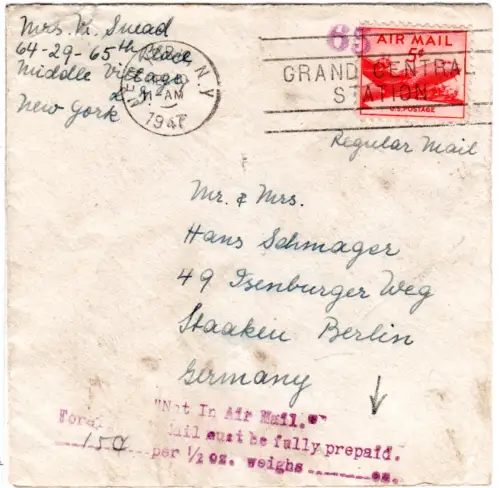 Mrs. M. Snead
64-29-65th Place
Middle Village
New York
NEW YORK, N.Y.
11-AM
1947
GRAND CENTRAL
STATION
65
AIR MAIL
5¢
U.S. POSTAGE
Regular Mail
Mr. & Mrs.
Hans Schmager
49 Isenburger Weg
Staaken Berlin
Germany
"Not In Air Mail."
mail must be fully prepaid."
15¢ per 1/2 oz. weighs oz.